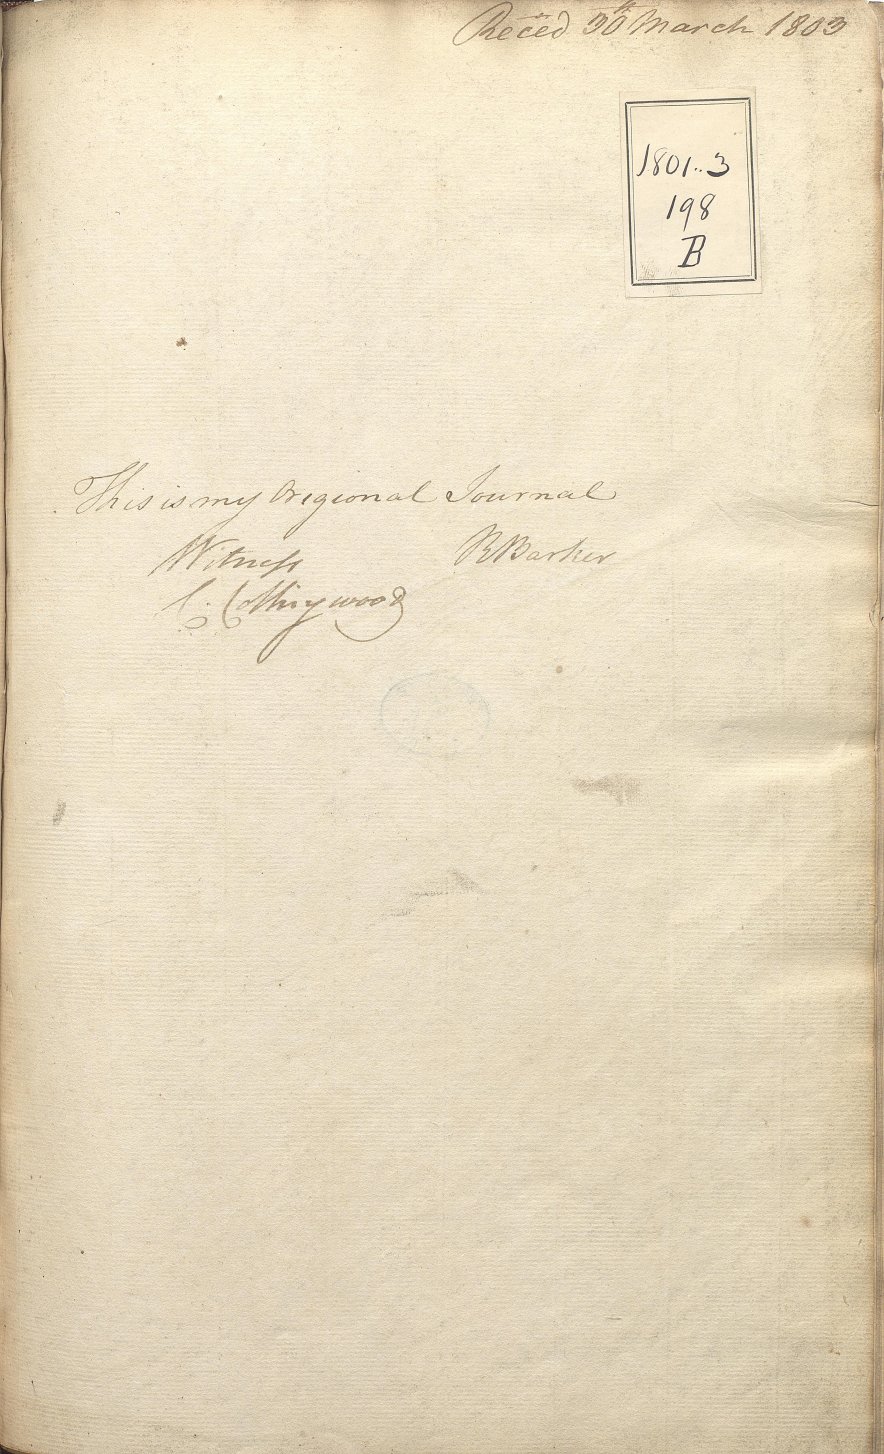 Receed 30th March 1803
1801..3
198
B
This is my Oregional Journal
Witness RBarker
C. Collingwood